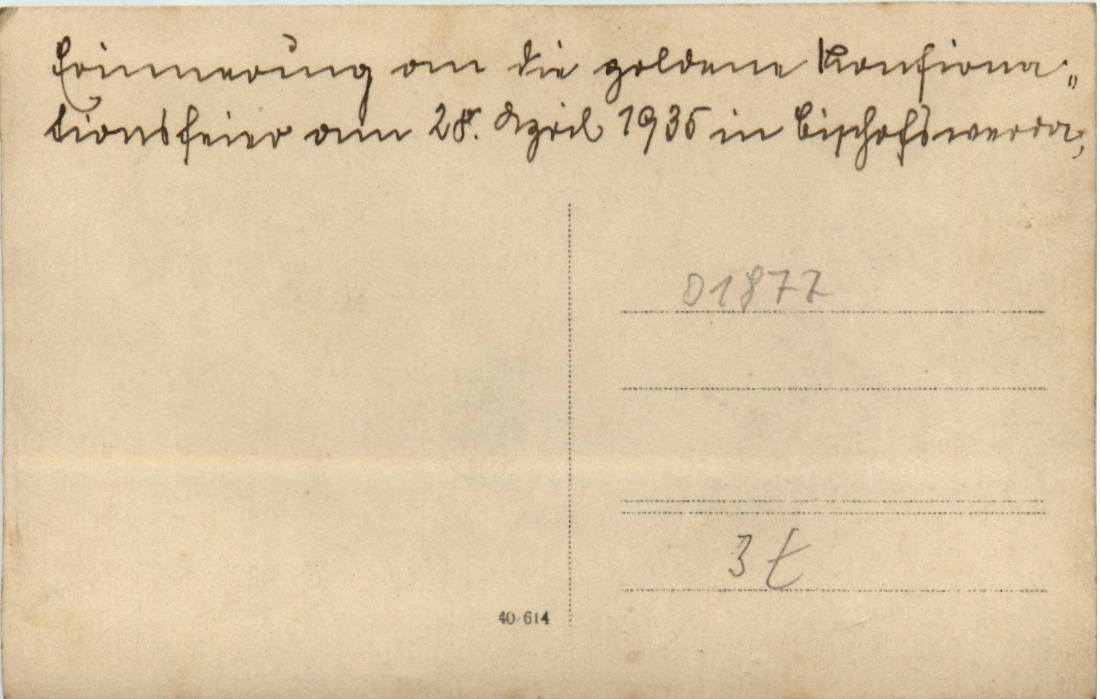 Erinnerung an die goldene Konfirma„
tionsfeier am 28. April 1935 in Bischofswerda,
01877
3
40/614